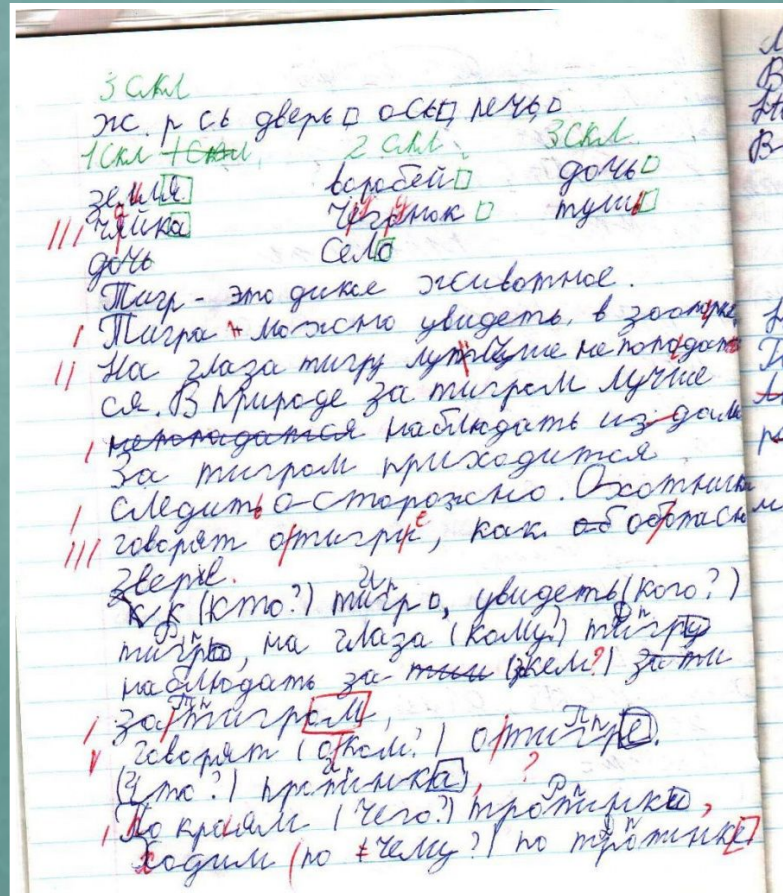 3 скл
ж. р сь дверь осьь печь
1 скл 1 скл 2 скл 3 скл
земля воробей дочь
чяйка тушь
дочь село
Тигр - это дикое животное.
Тигра можно увидеть, в зоопарке
На глаза тигру лучше непопадать
ся. В природе за тигром лучше
непопадатся наблюдать из дали
За тигром приходится
следить о сторожно. Охотники
говорят отигре, как об оопасном
звере.
(кто?) тигр, увидеть (кого?)
тигра, на глаза (кому?) тигру
наблюдать за (кем?) за ти
затигром,
говорят (оком?) отигре.
(Что?) протинка, ?
По краям (чего?) тропинки,
Ходим (по чему?) по тропинке